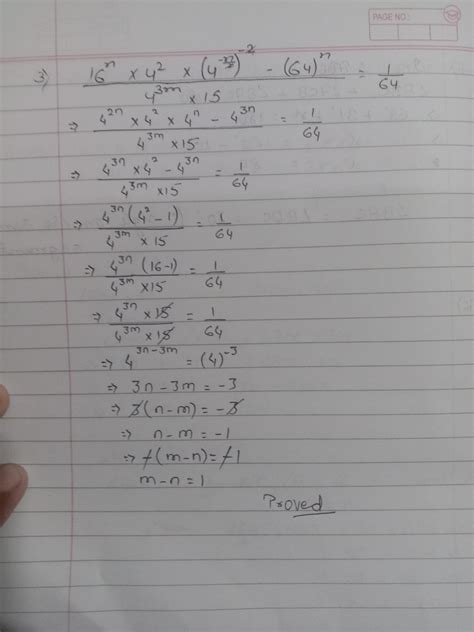 PAGE NO.:
3) (16^n × 4^2 × (4^(-n/2))^-2 - (64)^n) / (4^3m × 15) = 1/64
⇒ (4^2n × 4^2 × 4^n - 4^3n) / (4^3m × 15) = 1/64
⇒ (4^3n × 4^2 - 4^3n) / (4^3m × 15) = 1/64
⇒ (4^3n (4^2 - 1)) / (4^3m × 15) = 1/64
⇒ (4^3n (16-1)) / (4^3m × 15) = 1/64
⇒ (4^3n × 15) / (4^3m × 15) = 1/64
⇒ 4^(3n-3m) = (4)^-3
⇒ 3n - 3m = -3
⇒ 3(n-m) = -3
⇒ n-m = -1
⇒ -(m-n) = -1
m-n = 1
Proved